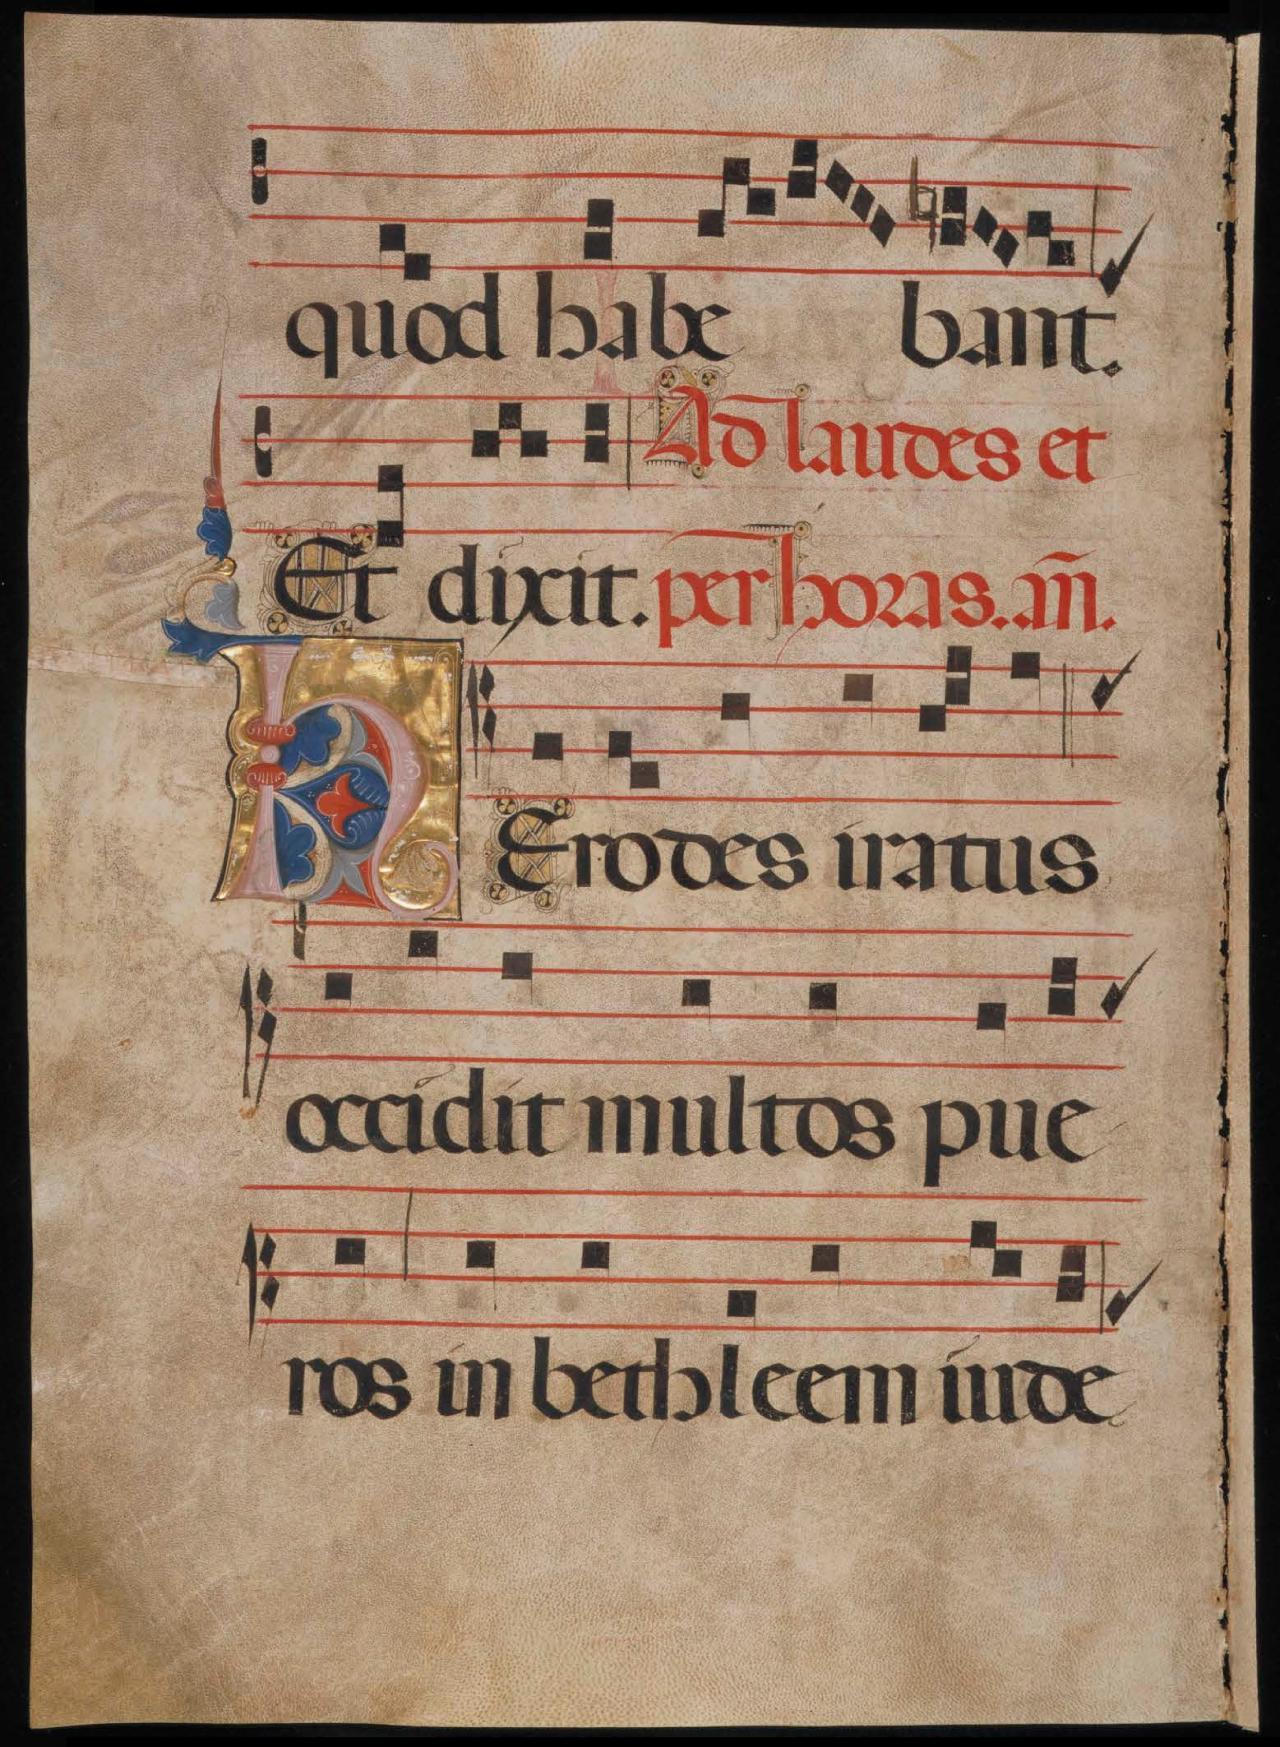 quod habe bant.
Et dixit. Ad laudes et
per horas. añ.
HErodes iratus
occidit multos pue
ros in bethleem iude